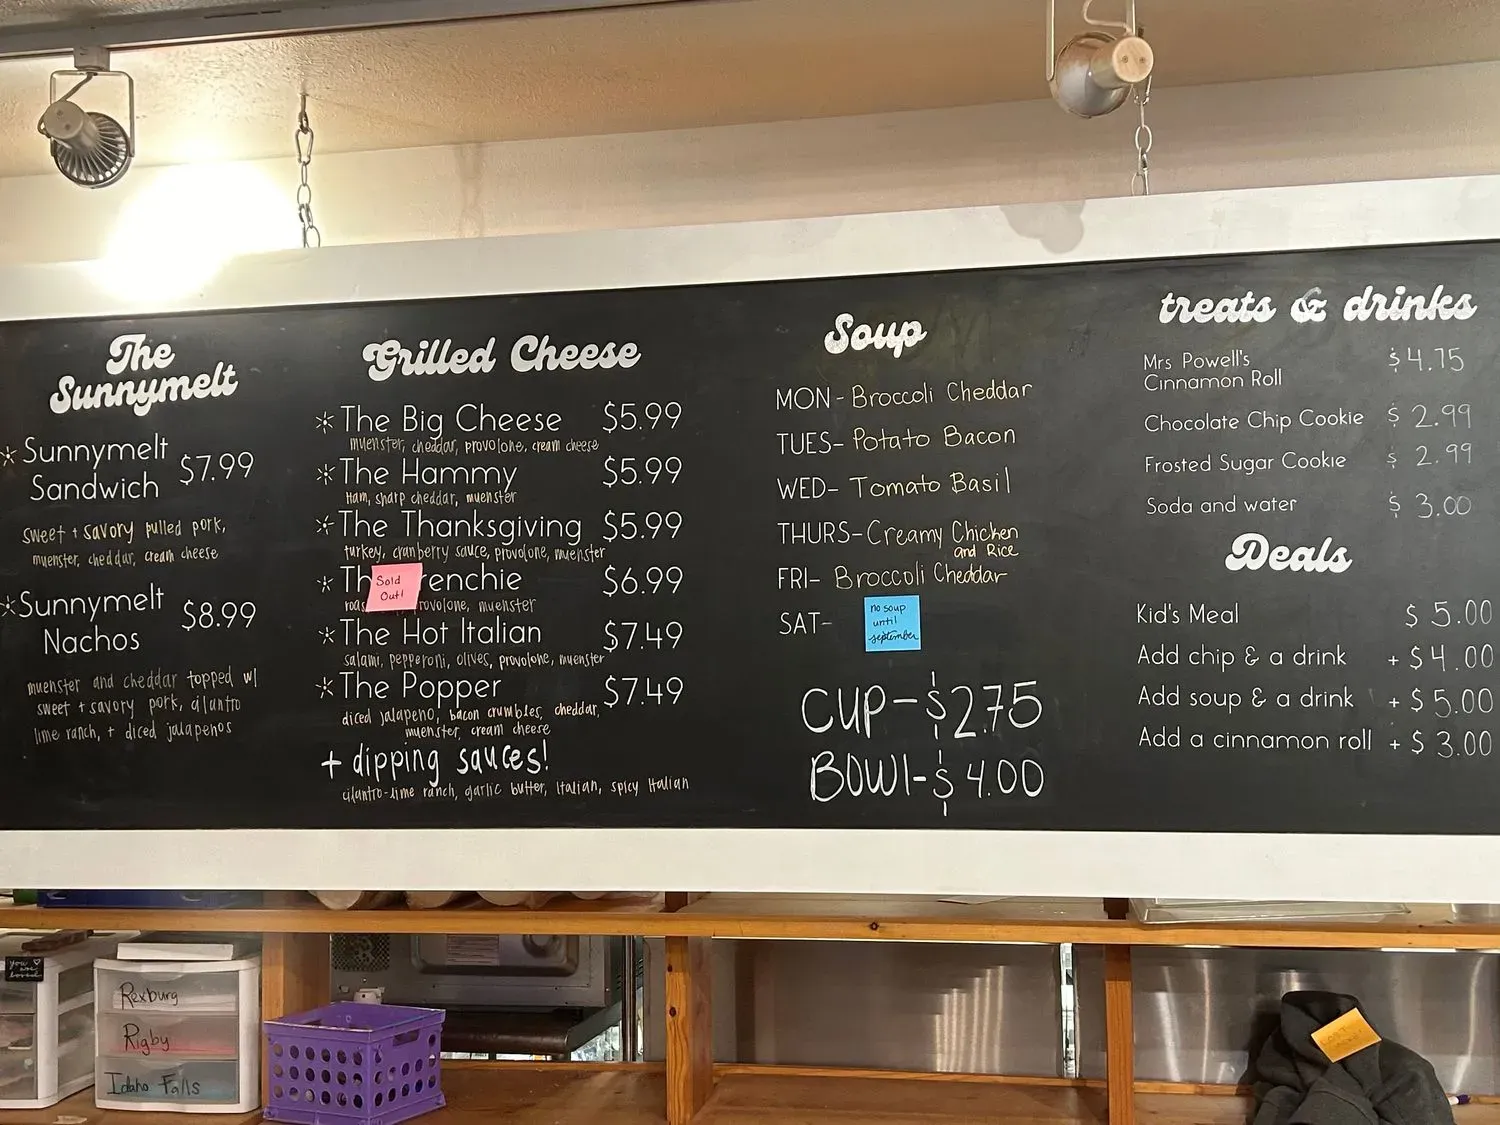 The
Sunnymelt
Sunnymelt
Sandwich $7.99
sweet + savory pulled pork,
muenster, cheddar, cream cheese
Sunnymelt
Nachos $8.99
muenster and cheddar topped w/
sweet + savory pork, cilantro
lime ranch, + diced jalapenos
Grilled Cheese
The Big Cheese $5.99
muenster, cheddar, provolone, cream cheese
The Hammy $5.99
Ham, sharp cheddar, muenster
The Thanksgiving $5.99
turkey, cranberry sauce, provolone, muenster
Th renchie $6.99
Sold
Out!
roas rovolone, muenster
The Hot Italian $7.49
salami, pepperoni, olives, provolone, muenster
The Popper $7.49
diced jalapeno, bacon crumbles, cheddar,
muenster, cream cheese
+ dipping sauces!
cilantro-lime ranch, garlic butter, Italian, spicy Italian
Soup
MON - Broccoli Cheddar
TUES- Potato Bacon
WED- Tomato Basil
THURS- Creamy Chicken
and Rice
FRI- Broccoli Cheddar
SAT-
no soup
until
september
CUP-$2.75
BOWl-$4.00
treats & drinks
Mrs Powell's
Cinnamon Roll $4.75
Chocolate Chip Cookie $ 2.99
Frosted Sugar Cookie $ 2.99
Soda and water $ 3.00
Deals
Kid's Meal $ 5.00
Add chip & a drink + $ 4.00
Add soup & a drink + $ 5.00
Add a cinnamon roll + $ 3.00
you
are
loved
Rexburg
Rigby
Idaho Falls